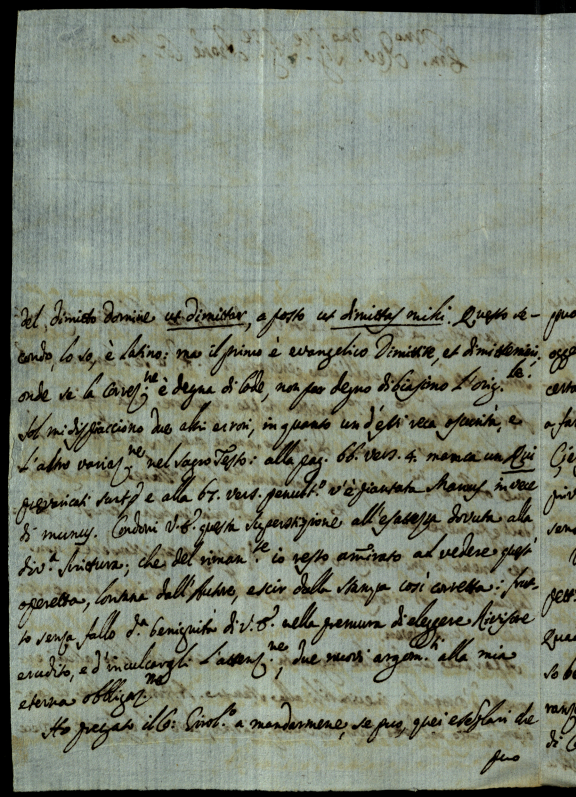 del dimitto Domine ut dimittar, a posto ut dimittas mihi. Questo se-
condo, lo so, è latino: ma il primo è evangelico Dimittite, et dimittemini;
onde se la Correz.ne è degna di lode, non par degno di biasimo l'orig.le.
Sol mi dispiacciono due altri errori, in quanto un d'essi reca oscurità, e
l'altro variaz.ne nel sagro Testo: alla pag. 66. vers. 4. manca un Qui
prevaricati sunt e alla 67. vers. penult.o v'è piantata Manus in vece
di munus. Condoni V.S. questa superstizione all'esatezza dovuta alla
div.a Scrittura; che del riman.te io resto amirato al vedere questa
operetta, lontana dall'Autore, escir dalla stampa così corretta: frut-
to senza fallo d.a benignità di V.S. nella premura di eleggere Revisore
erudito, e d'inculcargli l'attenz.ne, due nuovi argom.ti alla mia
eterna obbligaz.ne
Ho pregato il a mandarmene, se può, quei esemplari che
può